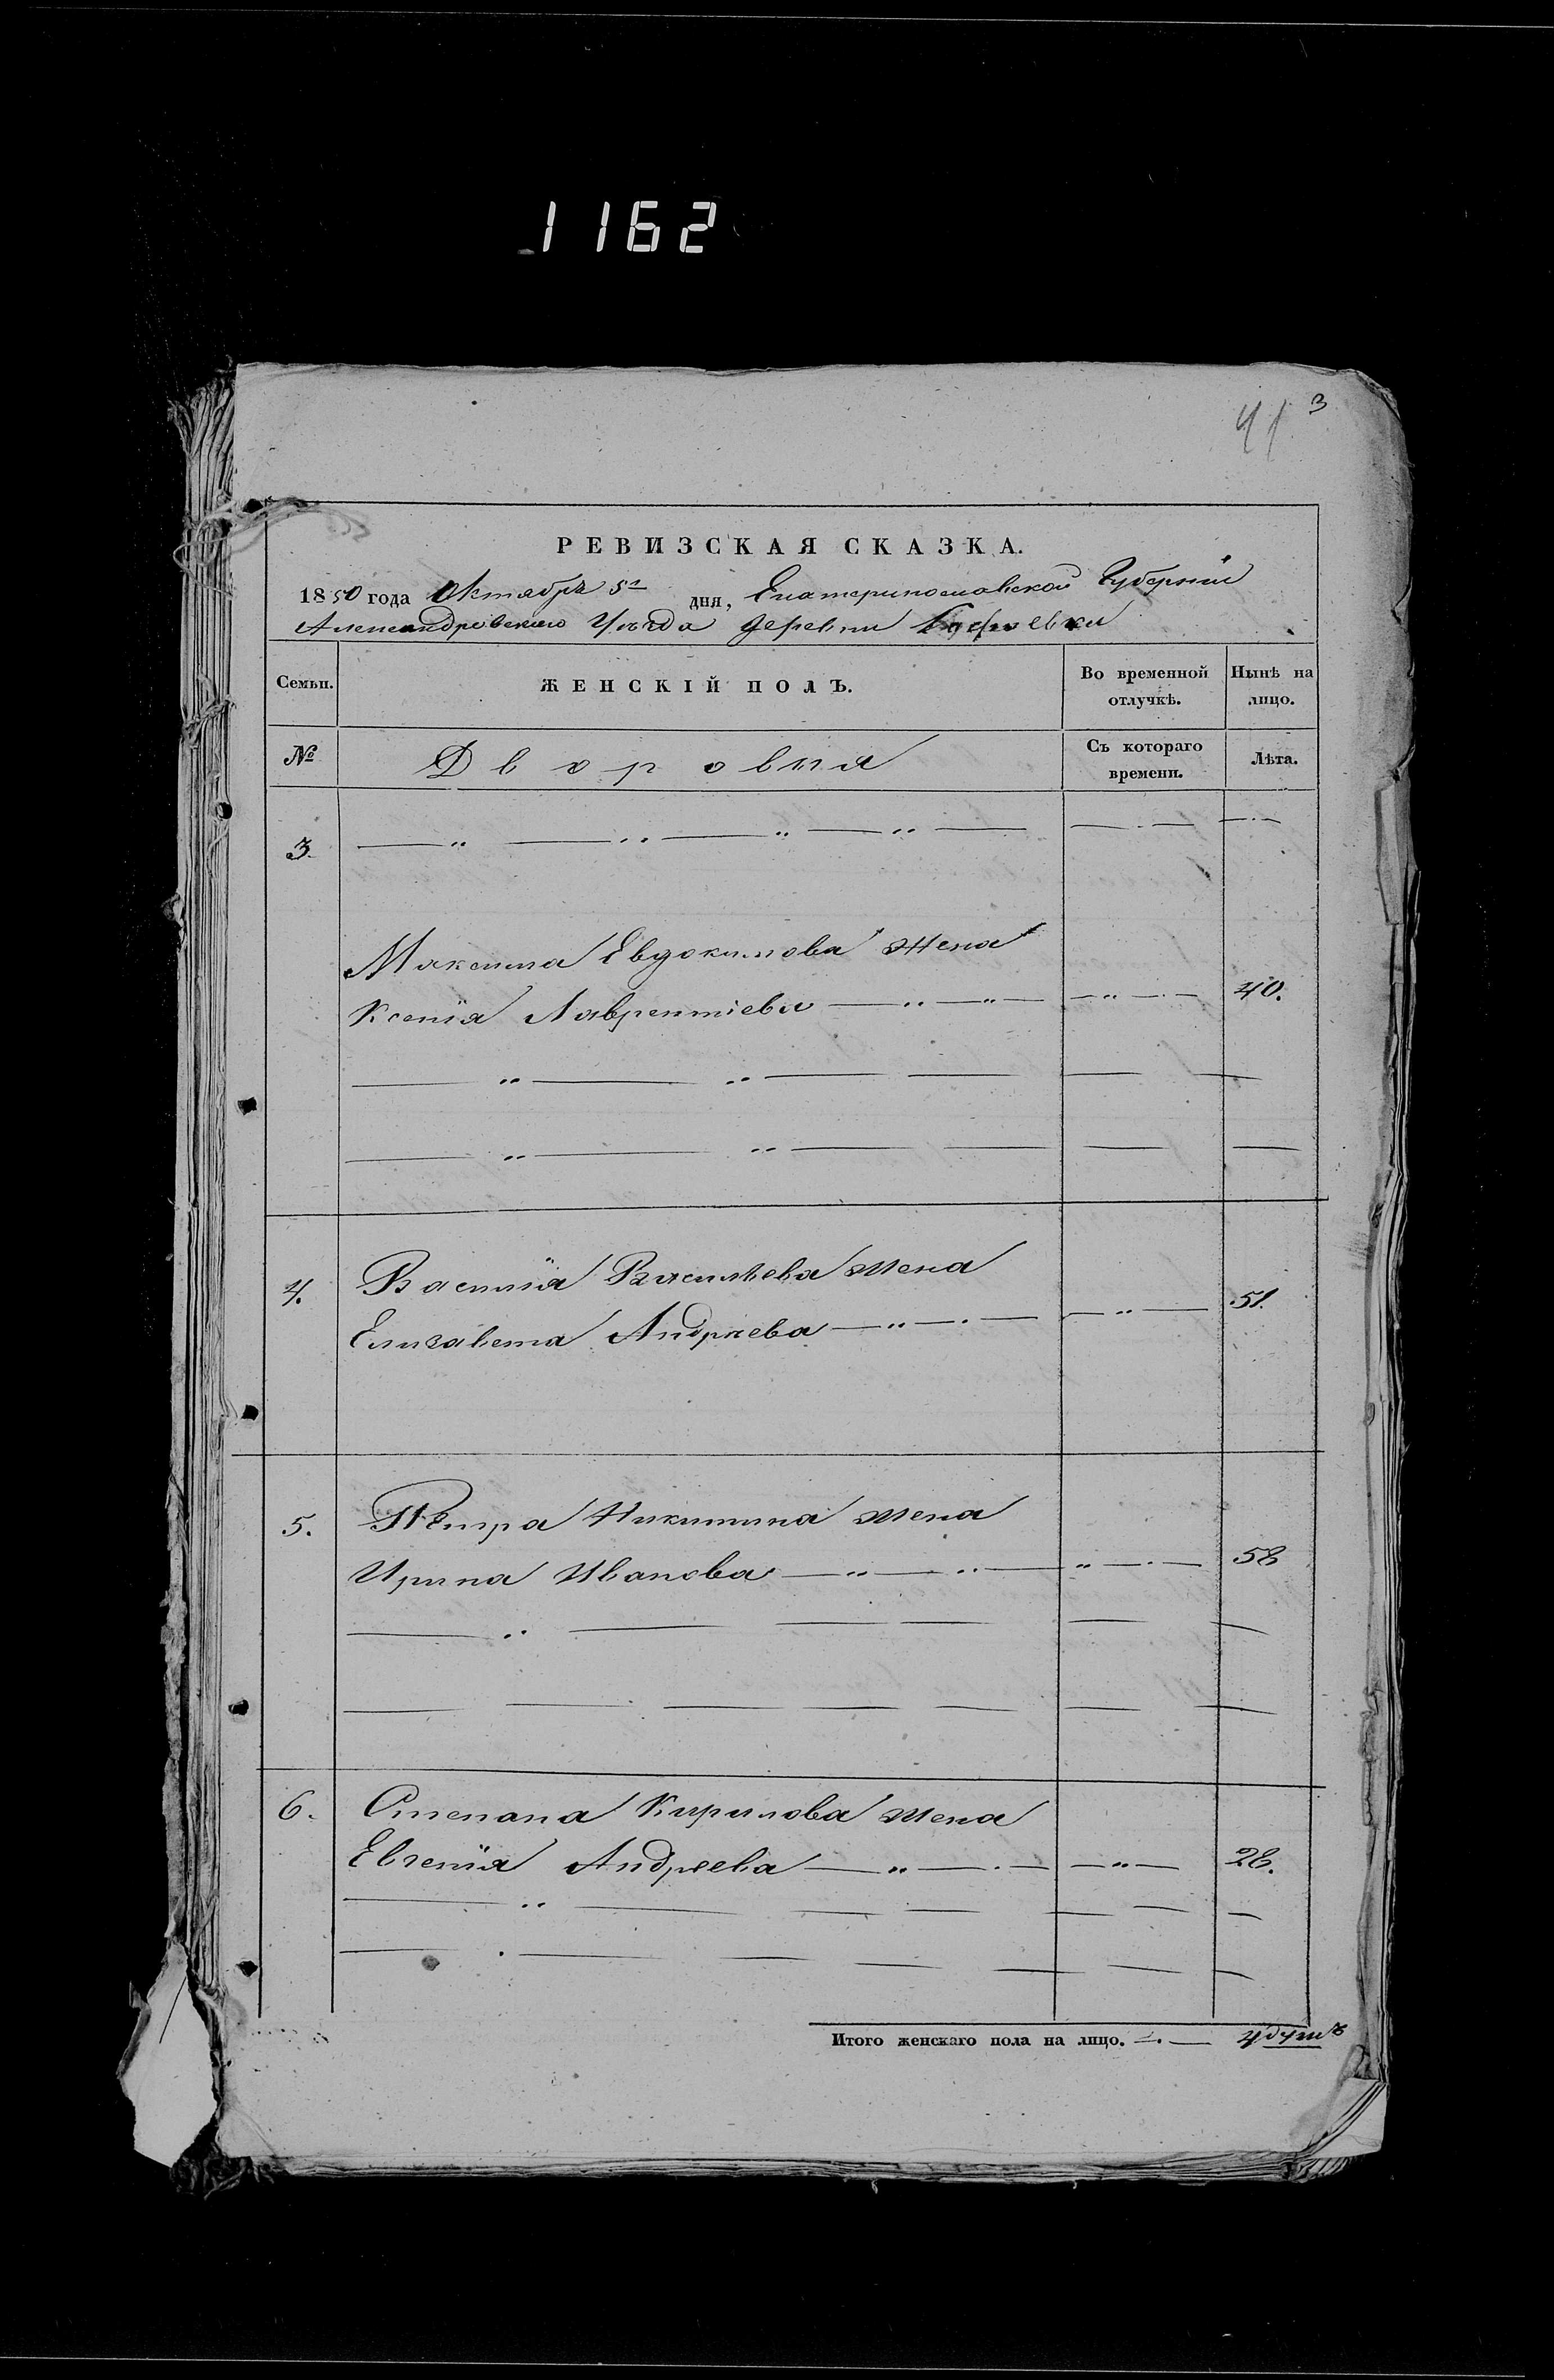 1162
3
41
РЕВИЗСКАЯ СКАЗКА.
1850 года Октября 5го дня, Екатеринославской Губерніи
Александровскаго Уѣзда деревни
Семьи. ЖЕНСКІЙ ПОЛЪ. Во временной отлучкѣ. Нынѣ на лицо.
№ Дворовыя Съ котораго времени. Лѣта.
3.
Максима Евдокимова жена
Ксенія Лаврентіева 40.
4. Василія Васильева жена
Елизавета Андреева 51.
5. Петра Никитина жена
Ирина Иванова 58
6. Степана Кирилова жена
Евгенія Андреева 28.
Итого женскаго пола на лицо. 4 душъ